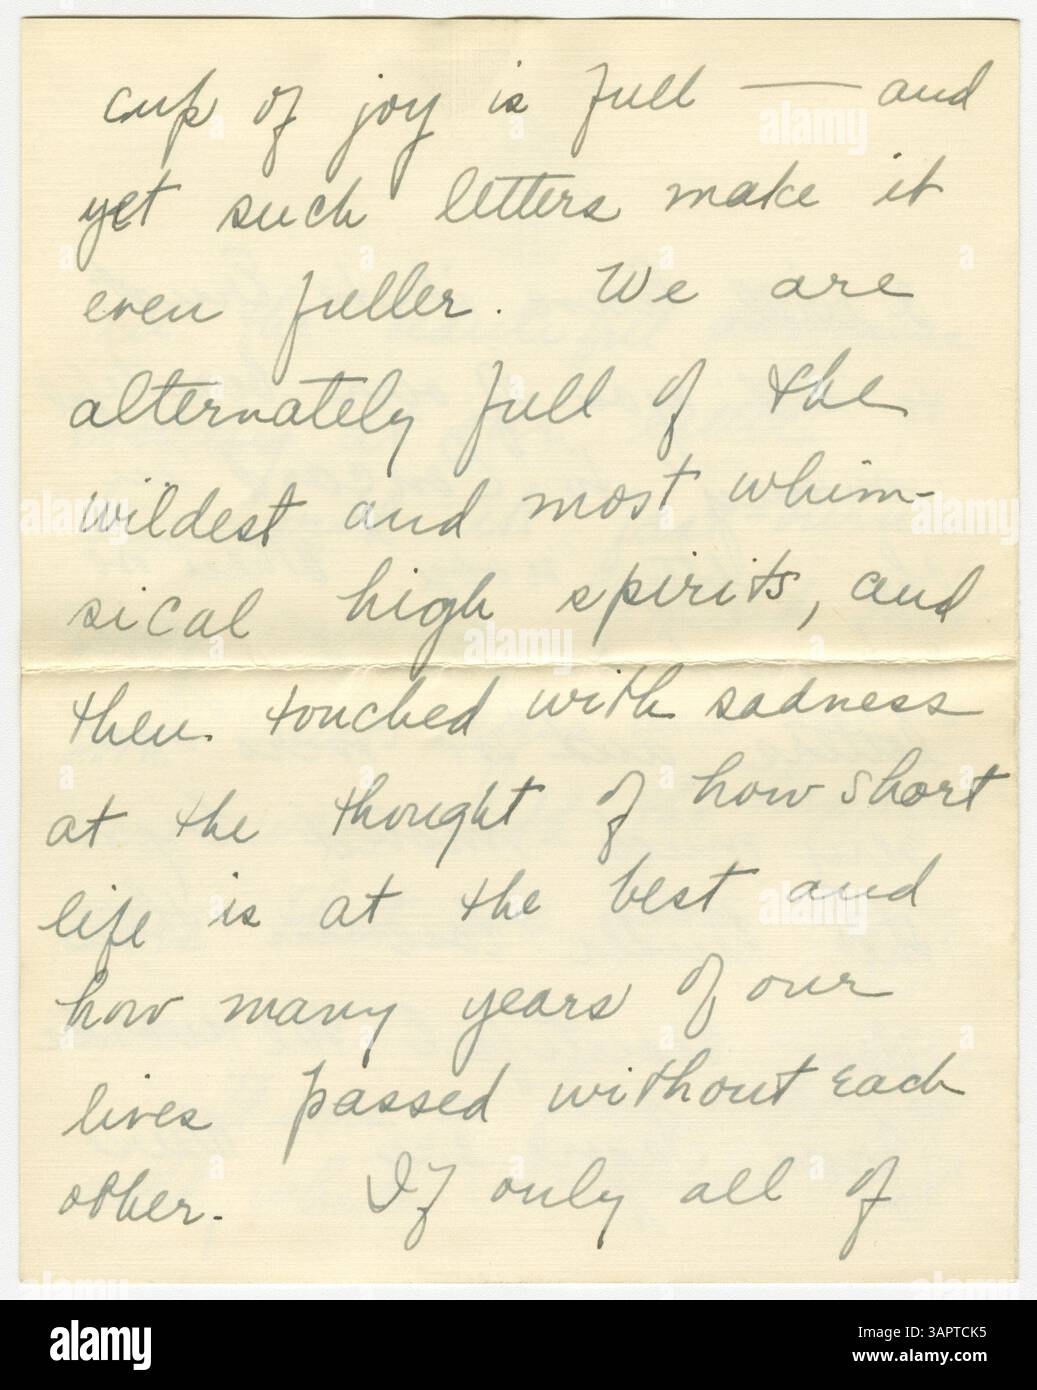 cup of joy is full — and
yet such letters make it
even fuller. We are
alternately full of the
wildest and most whim-
sical high spirits, and
then touched with sadness
at the thought of how short
life is at the best and
how many years of our
lives passed without each
other. If only all of
alamy
Image ID: 3APTCK5
www.alamy.com